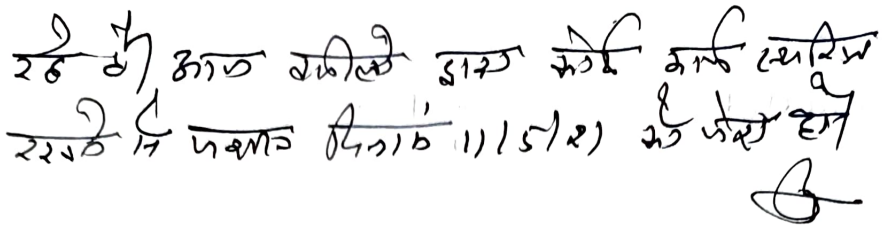 रहे हैं। आज वकीलो द्वारा कोई कार्य स्थगित
रखने से पश्चात दिनांक 11/5/21 को पेश हो